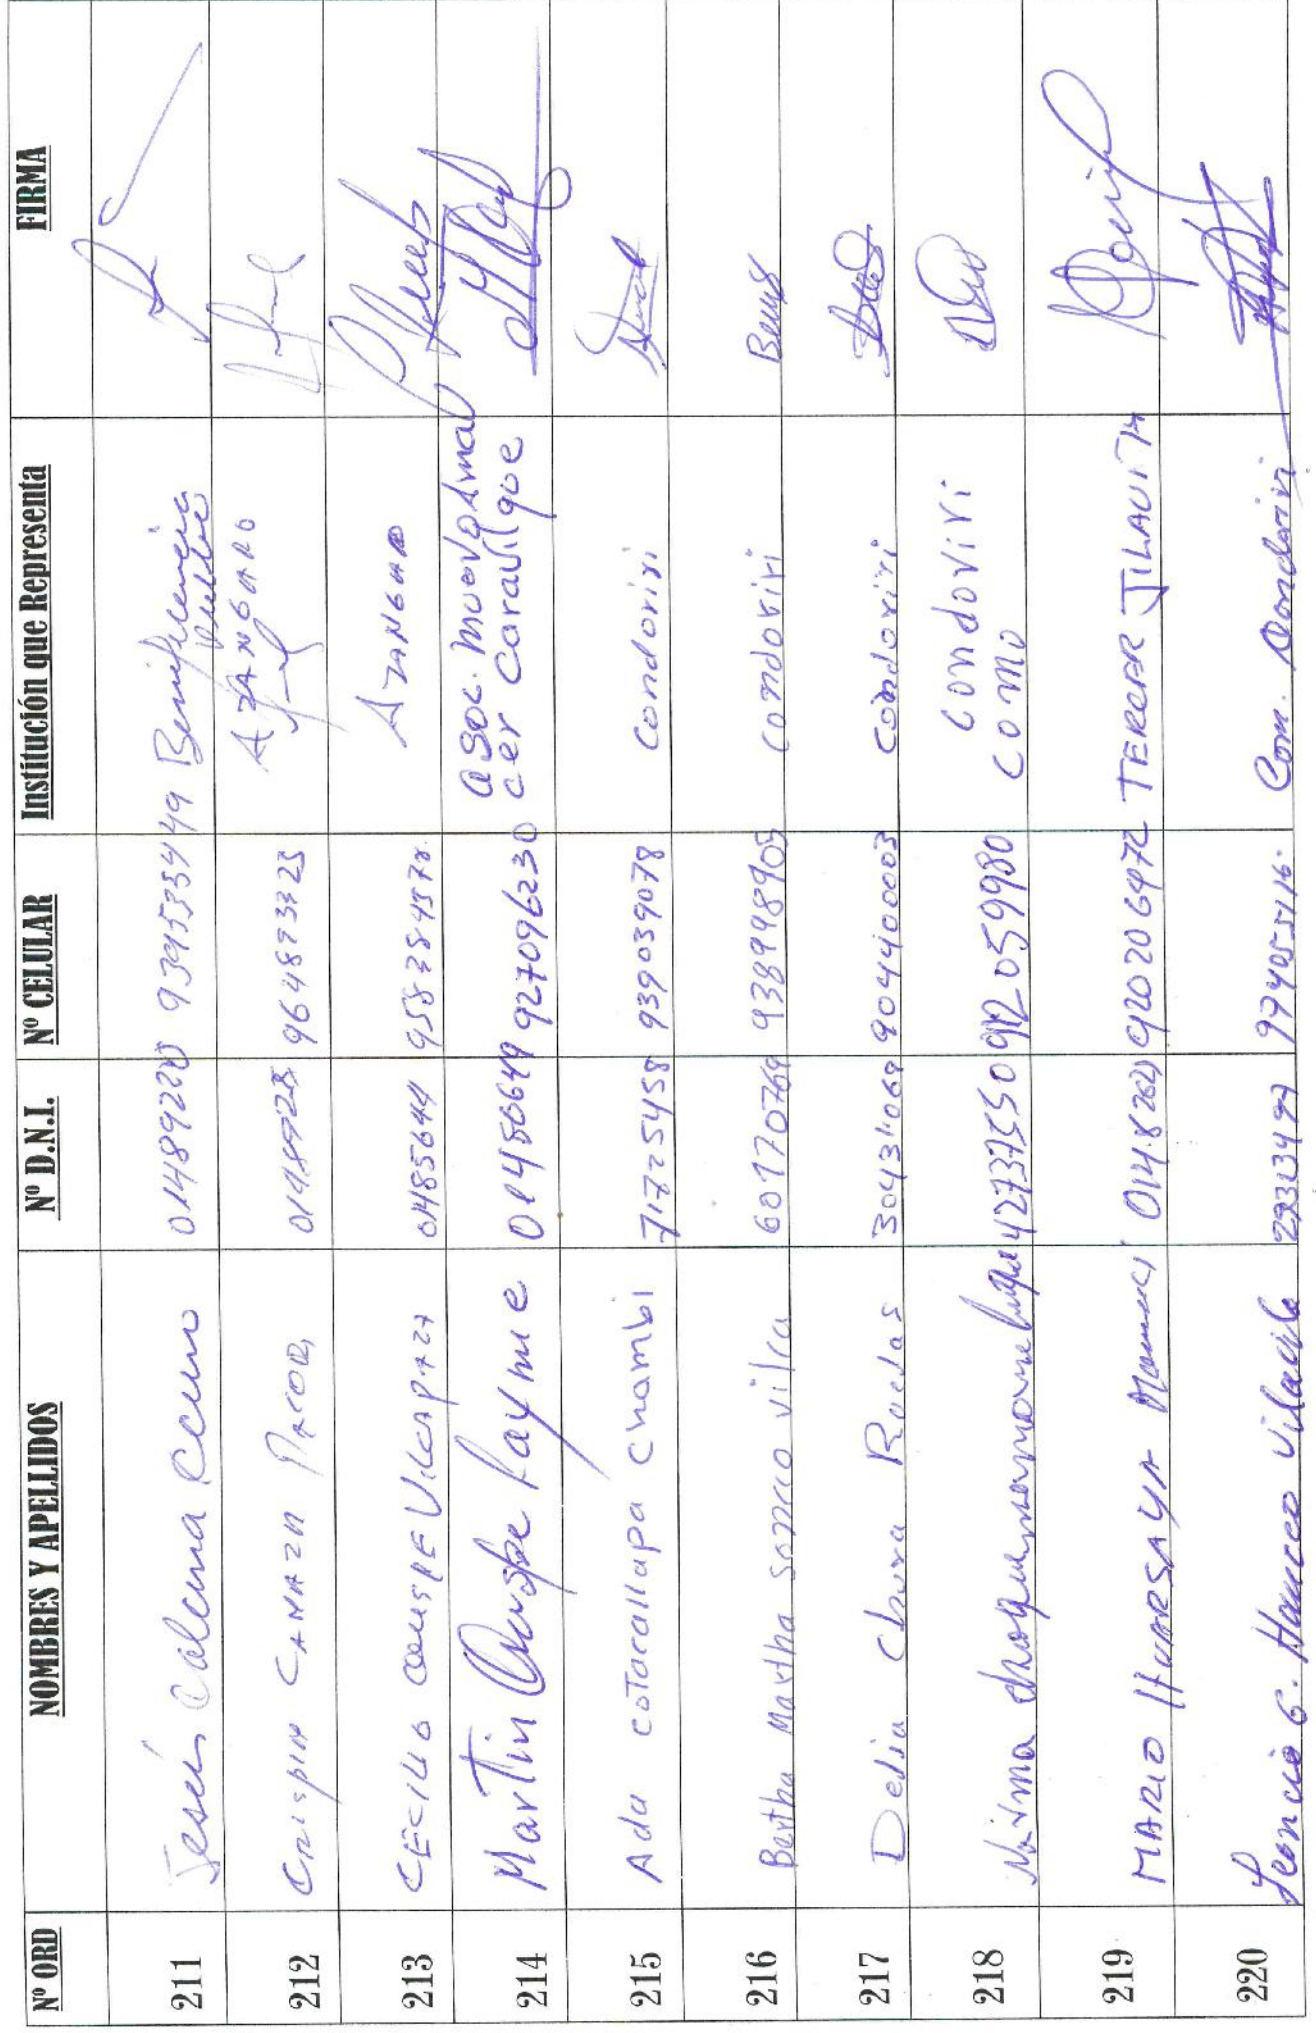 Nº ORD NOMBRES Y APELLIDOS Nº D.N.I. Nº CELULAR Institución que Representa FIRMA
211 Jesús Calcina Ccuno 01489220 939153549 Benificencia
212 Crispin CANAZA 964873323 AZANGARO
213 CECILIO QUISPE VILCAPAZA 01485644 AZANGARO
214 Martin Quispe Payme 01450649 927096230 asoc. muovoamal
cer Caravilque
215 Ada coTacallapa Chambi 71725458 939039078 Condoriri
216 Bertha Martha soncco vilca 60170769 938998905 Condoriri
217 Delia Chura Ruedas 30431069 904400003 Condoriri
218 42737550 912059980 Condoviri
como
219 MARIO HUARSAYA Mamani 920206472 TERCER JILAVITA
220 Leoncio G. Hancco Vilacila 29323497 974055116. Com. Condoriri